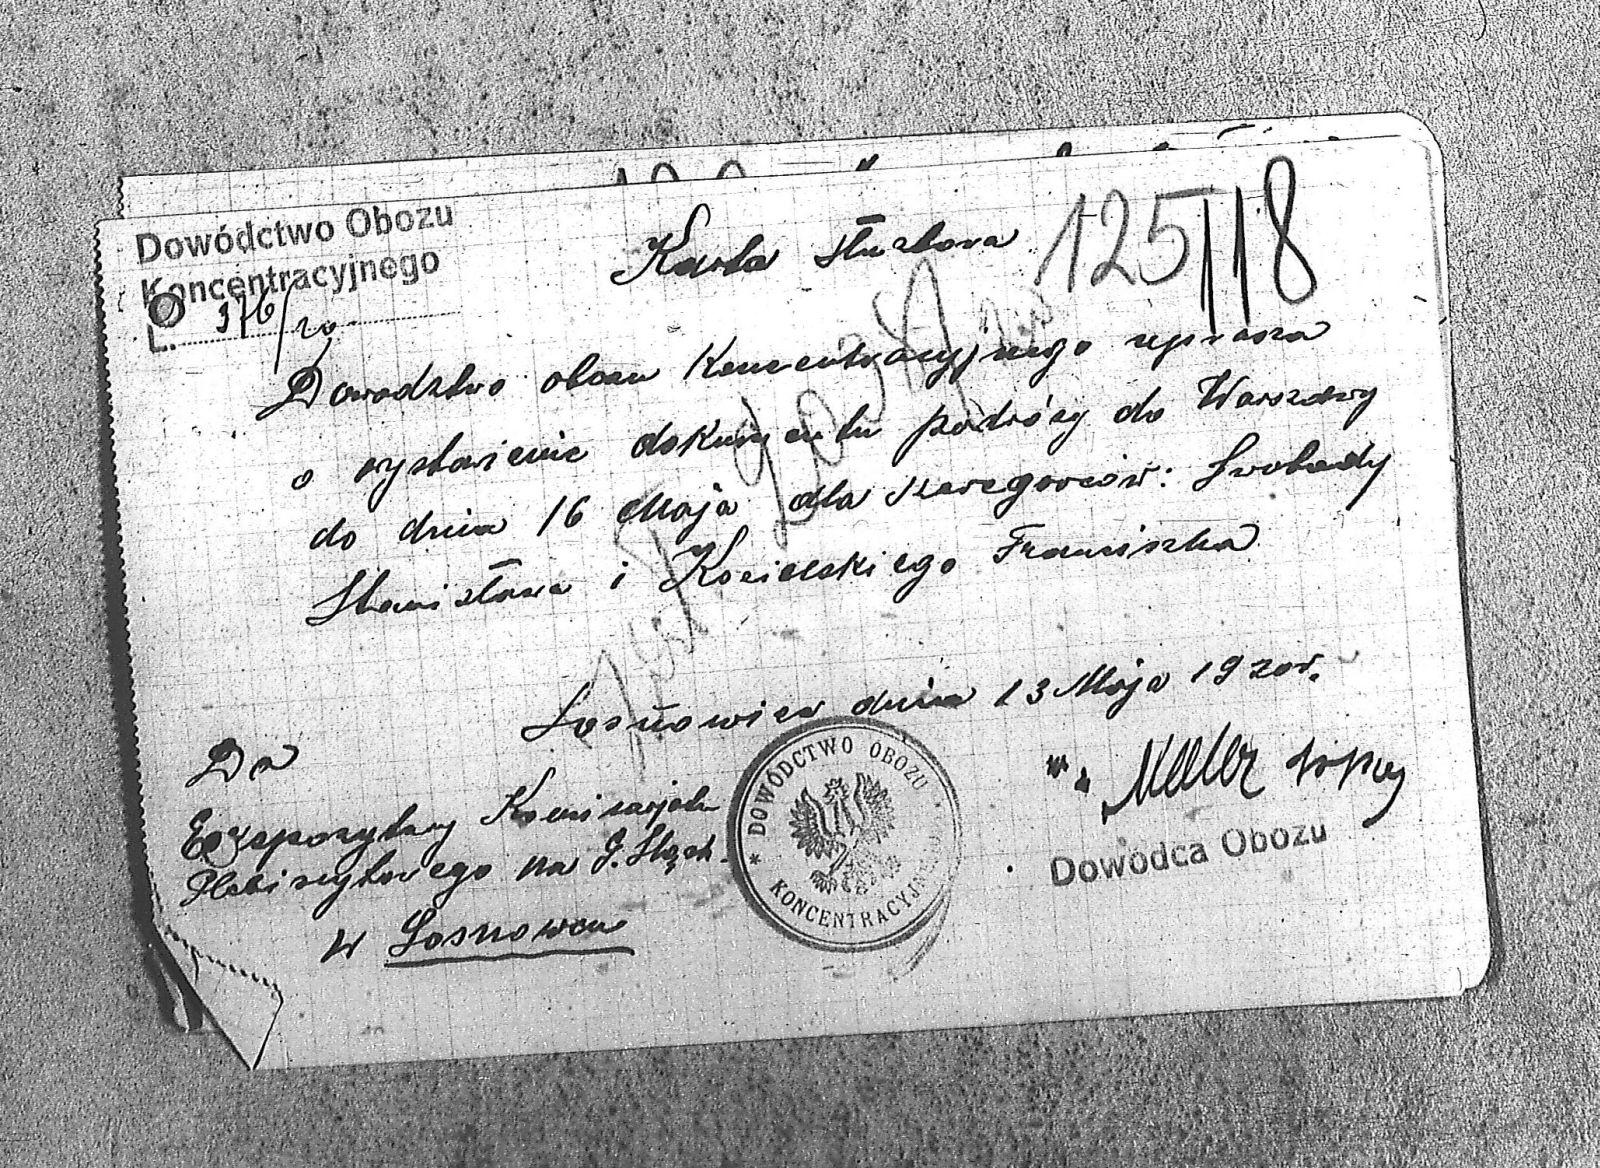 Dowództwo Obozu
Koncentracyjnego
L. 376/20
Karta służbowa
125/118
Dowodztwo obozu Koncentracyjnego uprasza
o wystawienie dokumentu podróży do Warszawy
do dnia 16 Maja dla szeregowców: Swobody
Stanisława i Kozielskiego Franciszka
Sosnowiec dnia 13 Maja 1920r.
Do
Ekspozytury Komisarjatu
Plebiscytowego na G. Śląsk
w Sosnowcu
DOWÓDCTWO OBOZU
KONCENTRACYJNEGO
Dowódca Obozu